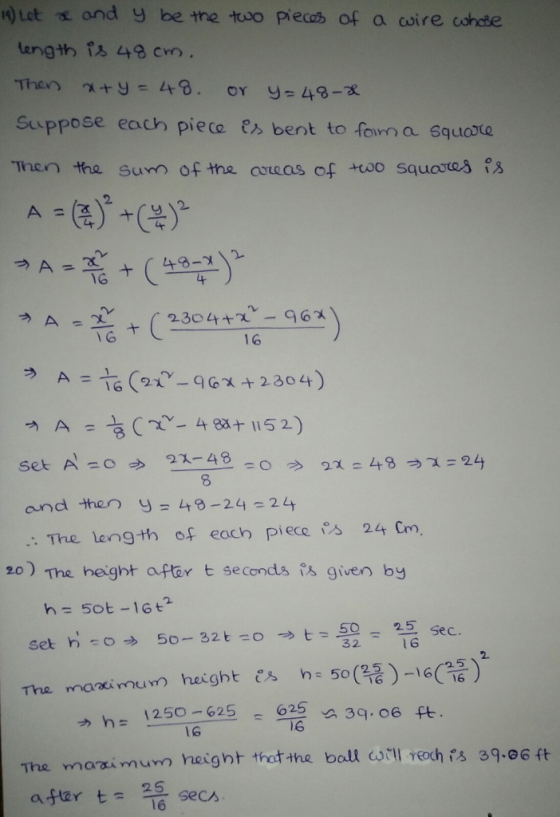 19) Let x and y be the two pieces of a wire whose
length is 48 cm.
Then x+y = 48. or y = 48-x
Suppose each piece is bent to form a square
Then the sum of the areas of two squares is
A = (x/4)² + (y/4)²
⇒ A = x²/16 + ((48-x)/4)²
⇒ A = x²/16 + ((2304+x²-96x)/16)
⇒ A = 1/16 (2x²-96x+2304)
⇒ A = 1/8 (x²-48x+1152)
set A' = 0 ⇒ (2x-48)/8 = 0 ⇒ 2x = 48 ⇒ x = 24
and then y = 48-24 = 24
∴ The length of each piece is 24 Cm.
20) The height after t seconds is given by
h = 50t - 16t²
set h' = 0 ⇒ 50-32t = 0 ⇒ t = 50/32 = 25/16 sec.
The maximum height is h = 50(25/16) - 16(25/16)²
⇒ h = (1250-625)/16 = 625/16 ≈ 39.06 ft.
The maximum height that the ball will reach is 39.06 ft
after t = 25/16 secs.